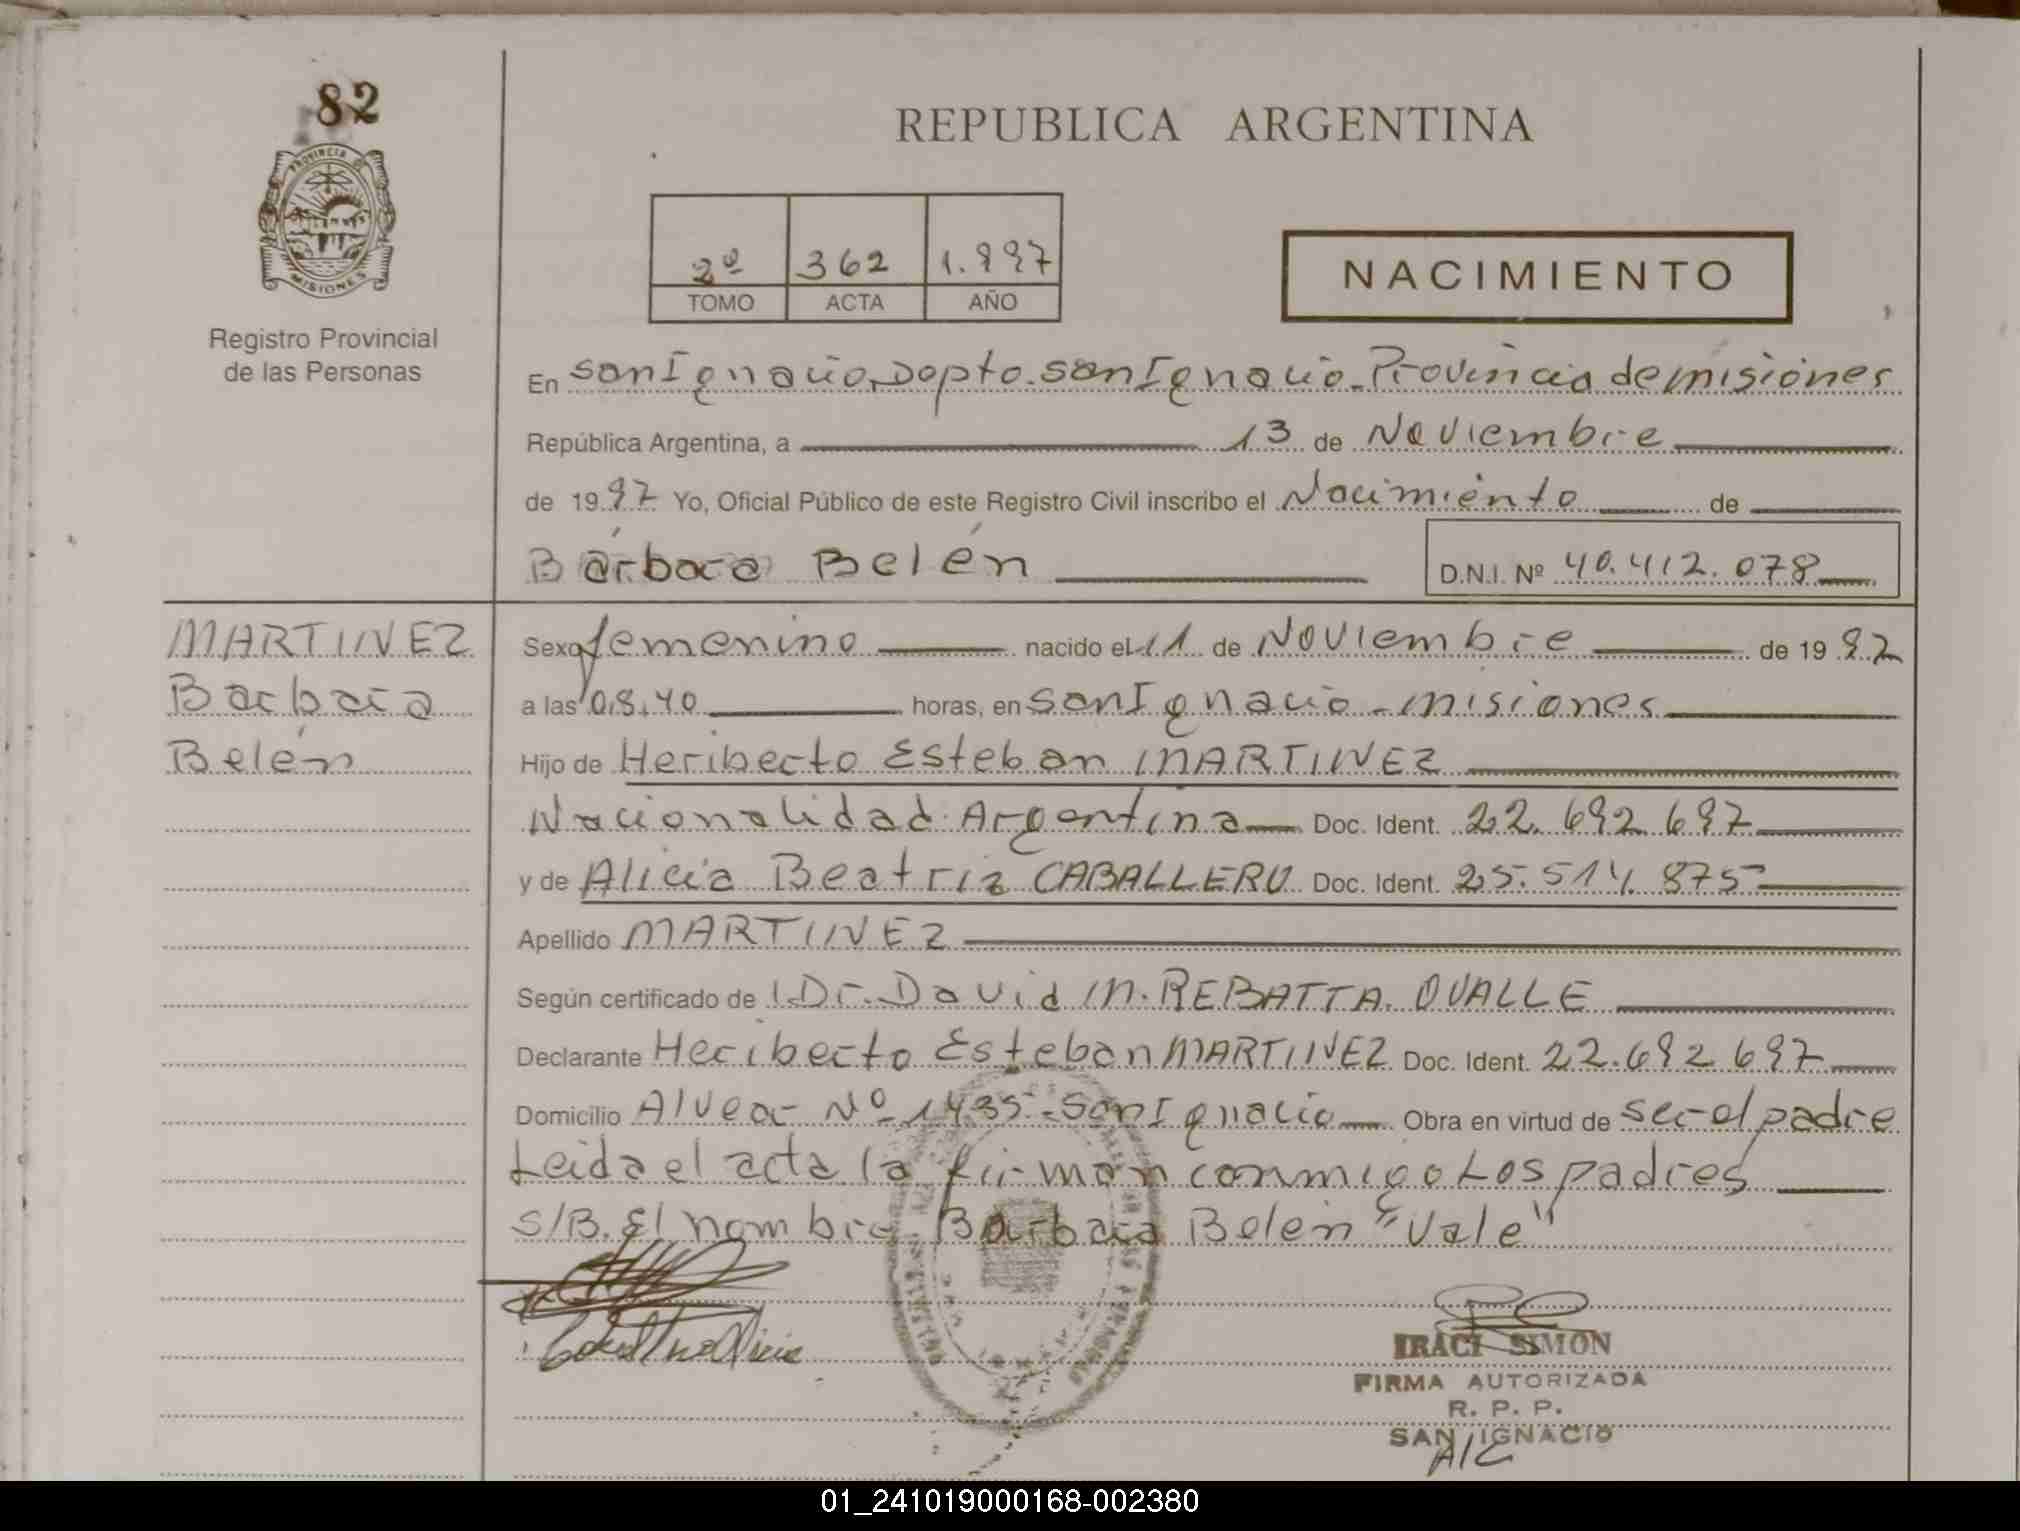 82
PROVINCIA DE
MISIONES
Registro Provincial
de las Personas
REPUBLICA ARGENTINA
2º 362 1.997
TOMO ACTA AÑO
NACIMIENTO
En San Ignacio, Dopto. San Ignacio - Provincia de misiones
República Argentina, a 13 de Noviembre
de 1997 Yo, Oficial Público de este Registro Civil inscribo el Nacimiento de
Bárbara Belén D.N.I. Nº 40.412.078
MARTINEZ
Bárbara
Belén
Sexo femenino nacido el 11 de Noviembre de 1997
a las 08,40 horas, en San Ignacio - misiones
Hijo de Heriberto Esteban MARTINEZ
Nacionalidad Argentina Doc. Ident. 22.692.697
y de Alicia Beatriz CABALLERO Doc. Ident. 25.514.875
Apellido MARTINEZ
Según certificado de Dr. David M. REBATTA. OVALLE
Declarante Heriberto Esteban MARTINEZ Doc. Ident. 22.692.697
Domicilio Alvear Nº 1435 - San Ignacio Obra en virtud de ser el padre
Leida el acta la firman conmigo Los padres
S/B. El nombre Bárbara Belén "Vale"
IRACI SIMON
FIRMA AUTORIZADA
R. P. P.
SAN IGNACIO
A/C
01_241019000168-002380